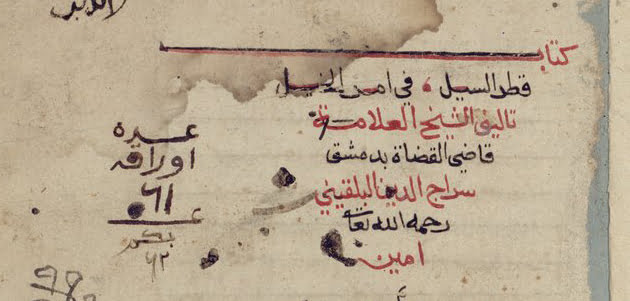 كتاب
قطر السيل في امر الخيل
تاليف الشيخ العلامة
قاضي القضاة بدمشق
سراج الدين البلقيني
رحمه الله تعا
امين
عدة
اوراقه
٦١
٦٢